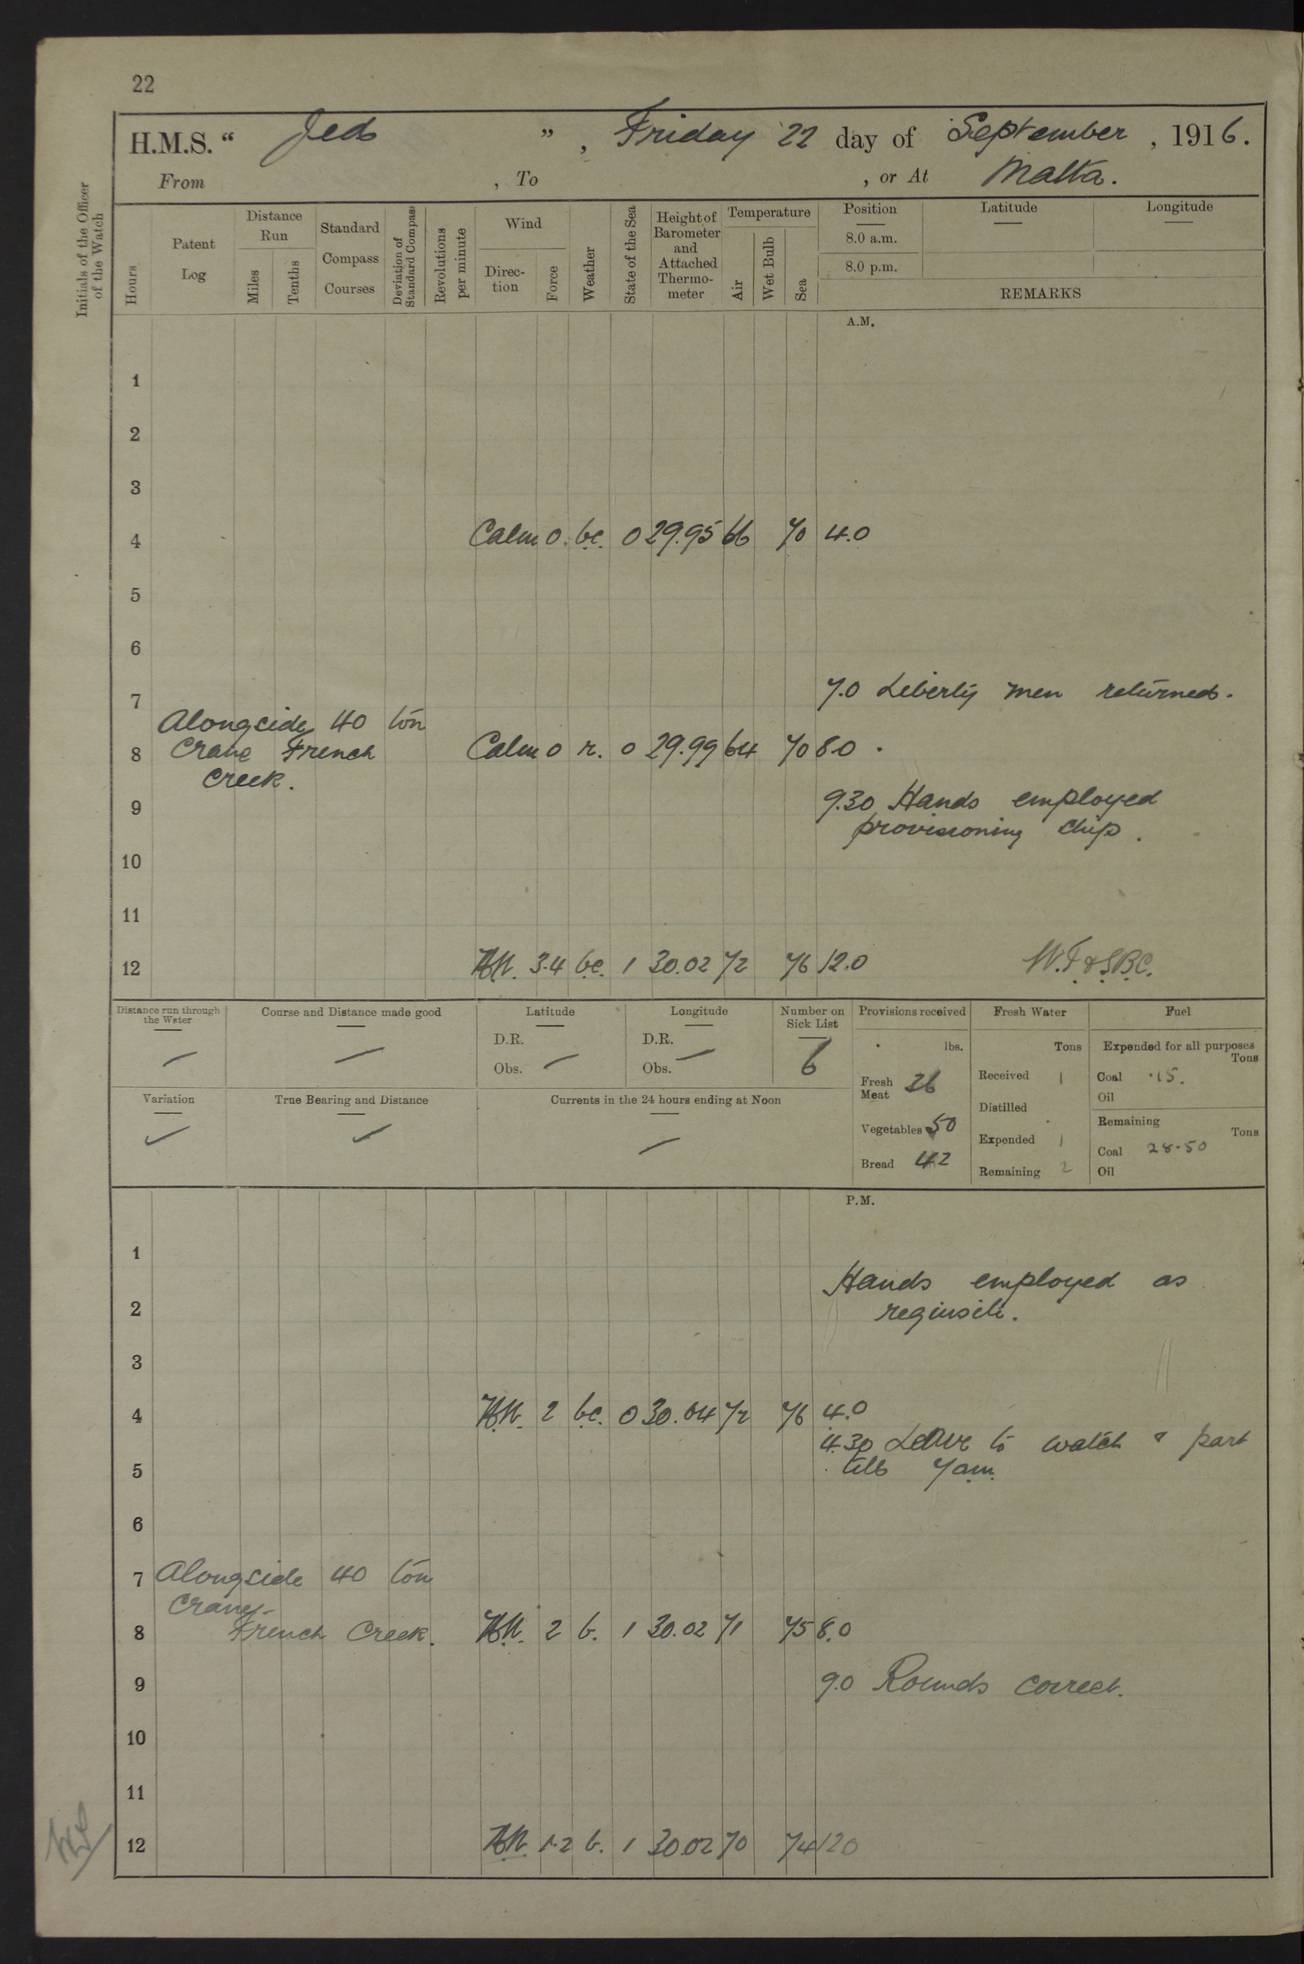 22
H.M.S. " Jed " , Friday 22 day of September , 1916.
From , To , or At Malta.
Initials of the Officer of the Watch
Hours
Patent Log
Distance Run
Miles
Tenths
Standard Compass Courses
Deviation of Standard Compass
Revolutions per minute
Wind
Direction
Force
Weather
State of the Sea
Height of Barometer and Attached Thermometer
Temperature
Air
Wet Bulb
Sea
Position
8.0 a.m.
8.0 p.m.
Latitude
Longitude
REMARKS
A.M.
1
2
3
4 Calm 0. bc. 0 29.95 66 70 4.0
5
6
7 7.0 Liberty men returned.
Alongside 40 ton
8 Crane French Calm 0 r. 0 29.99 64 70 8.0
Creek.
9 9.30 Hands employed
provisioning ship.
10
11
12 3.4 bc. 1 30.02 72 76 12.0
Distance run through the Water
Course and Distance made good
Latitude
D.R.
Obs.
Longitude
D.R.
Obs.
Number on Sick List
6
Provisions received
lbs.
Fresh Meat 26
Vegetables 50
Bread 42
Fresh Water
Tons
Received 1
Distilled
Expended 1
Remaining 2
Fuel
Expended for all purposes
Tons
Coal .15.
Oil
Remaining
Tons
Coal 28.50
Oil
Variation
True Bearing and Distance
Currents in the 24 hours ending at Noon
P.M.
1
Hands employed as
2 requisite.
3
4 2 bc. 0 30.04 72 76 4.0
4.30 Leave to watch & part
5 till 7am.
6
7 Alongside 40 ton
Crane
8 French Creek. 2 b. 1 30.02 71 75 8.0
9 9.0 Rounds correct.
10
11
12 1.2 b. 1 30.02 70 74 120